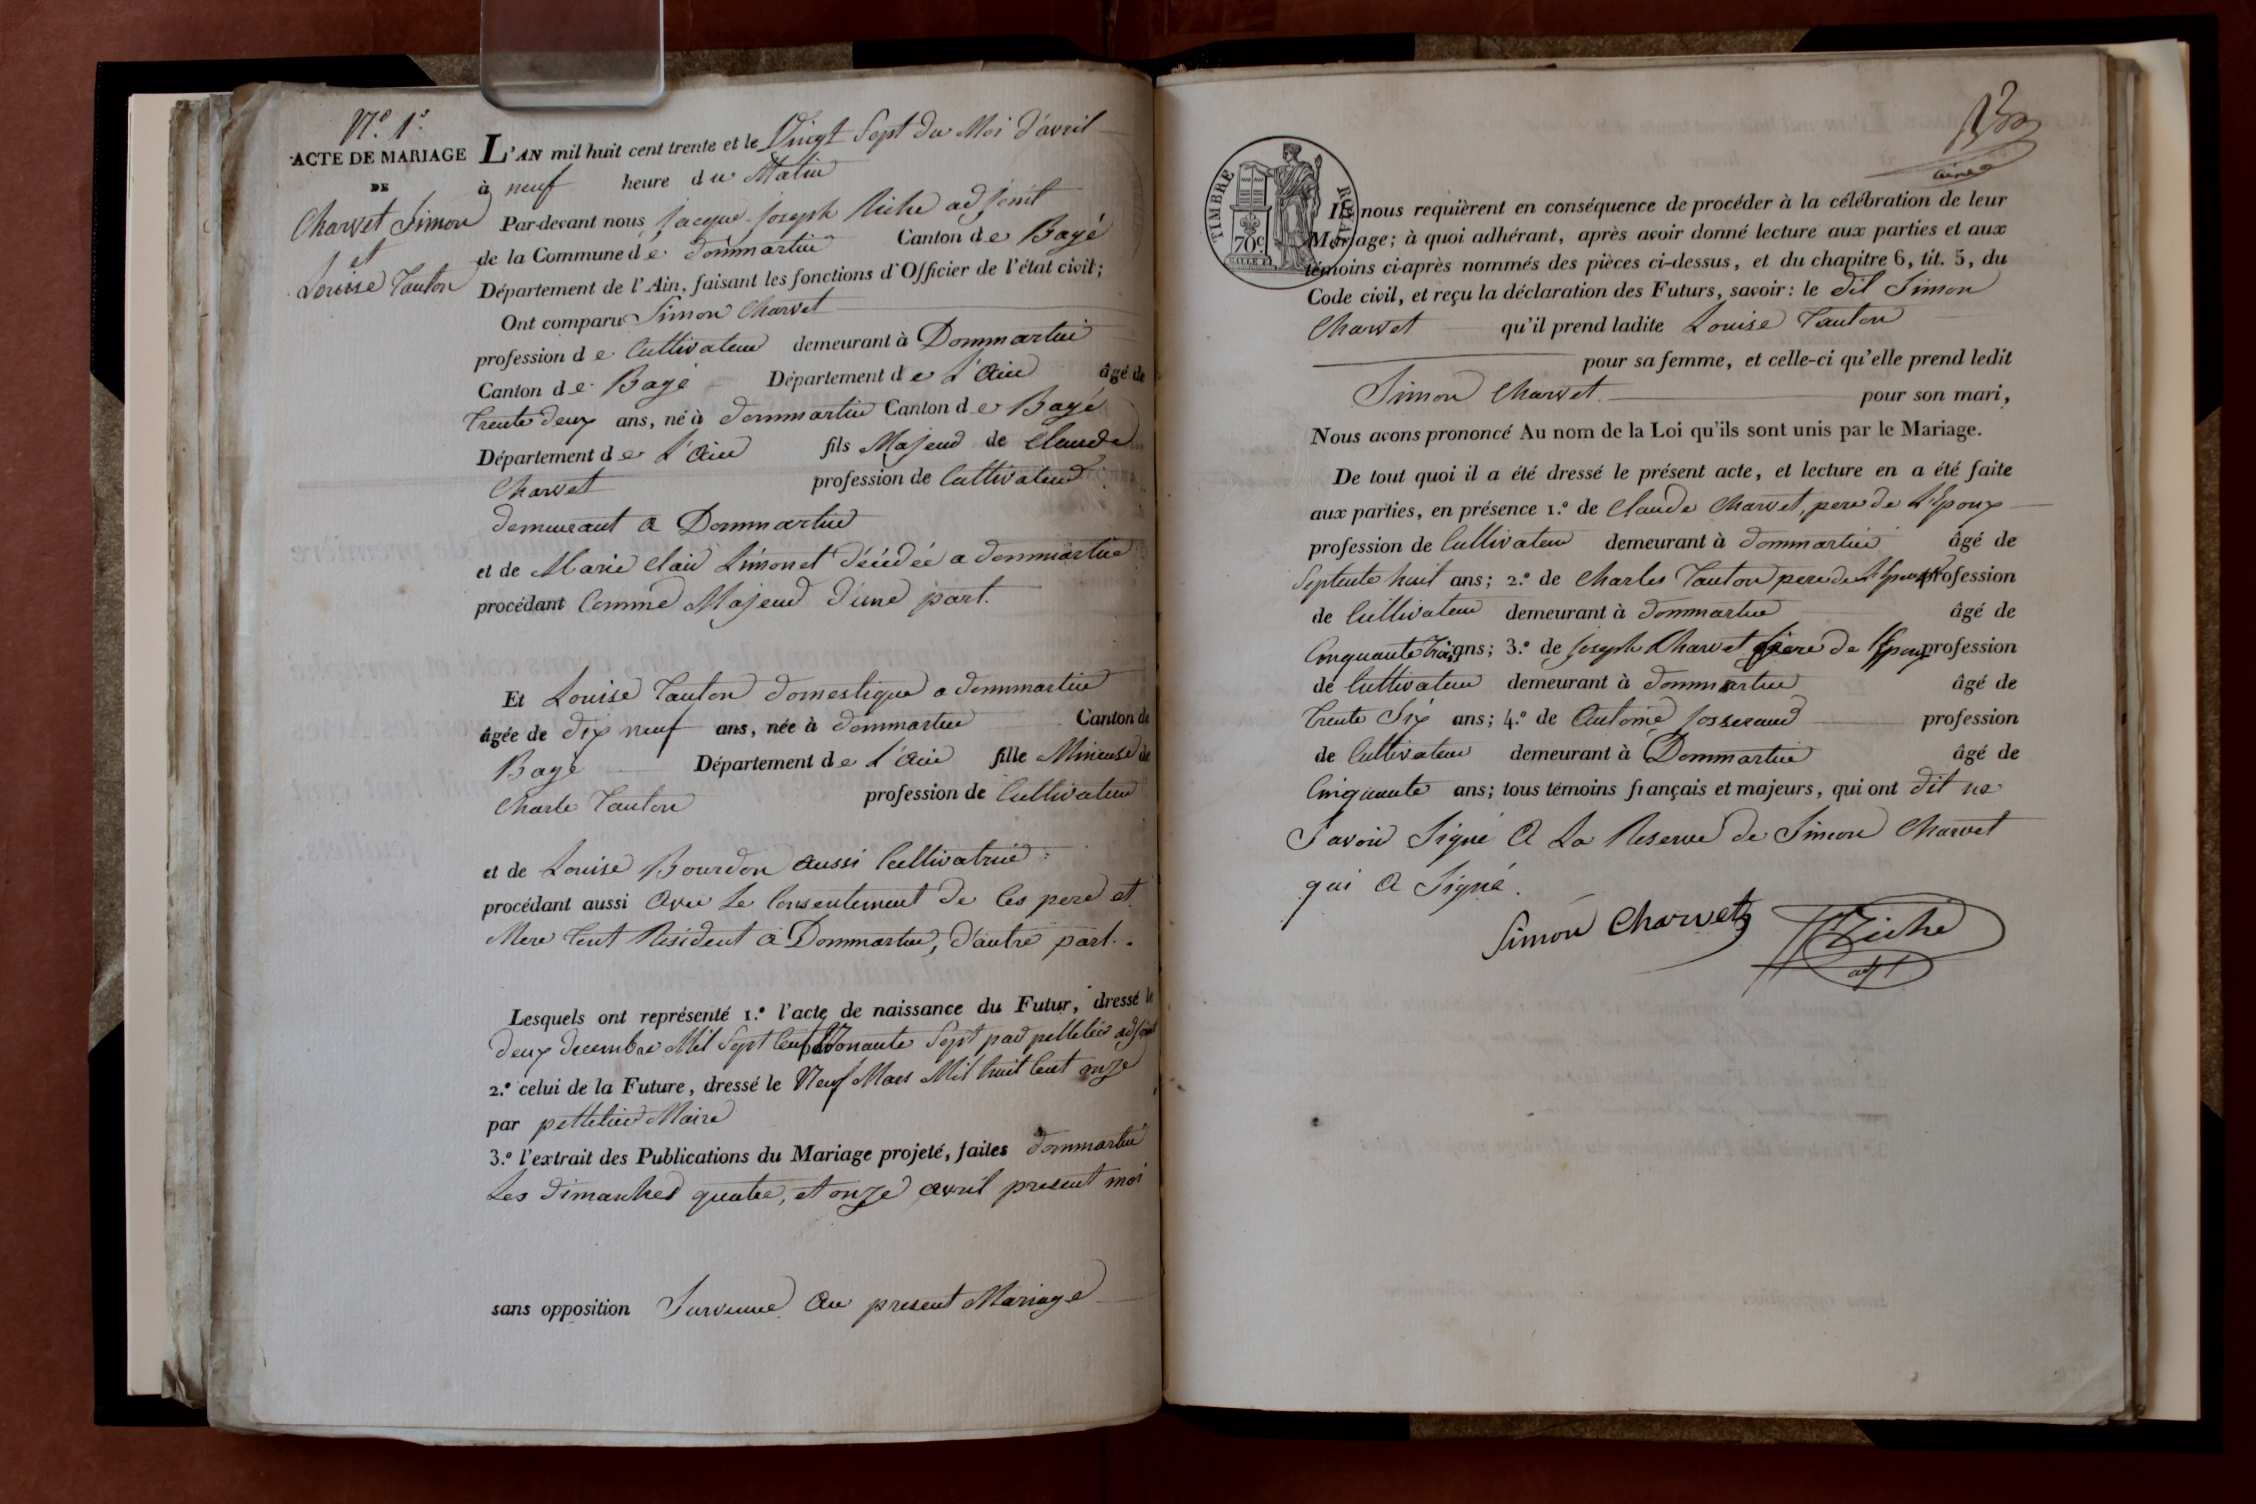 N.º 1.º
ACTE DE MARIAGE
DE
Charvet Simon
et
Louise Tanton
L'AN mil huit cent trente et le Vingt Sept du Moi d'avril
à neuf heure du Matin
Par-devant nous Jacque Joseph Riche adjoint
de la Commune de Dommartin Canton de Bagé
Département de l'Ain, faisant les fonctions d'Officier de l'état civil;
Ont comparu Simon Charvet
profession de Cultivateur demeurant à Dommartin
Canton de Bagé Département de L'Ain âgé de
trente deux ans, né à dommartin Canton de Bagé
Département de L'Ain fils Majeur de Claude
Charvet profession de Cultivateur
demeurant a Dommartin
et de Marie Clair Limonet décédée a dommartin
procédant Comme Majeur d'une part.
Et Louise Tanton domestique a dommartin
âgée de dix neuf ans, née à dommartin Canton de
Bagé Département de L'Ain fille Mineuse de
Charle Tanton profession de Cultivateur
et de Louise Bourdon aussi Cultivatrice
procédant aussi avec Le Consentement de Ces pere et
Mere tout Résident à Dommartin, d'autre part.
Lesquels ont représenté 1.º l'acte de naissance du Futur, dressé le
deux decembre Mil Sept Cent Nonante Sept par pelletier adjoint
2.º celui de la Future, dressé le Neuf Mars Mil huit Cent onze
par pelletier Maire
3.º l'extrait des Publications du Mariage projeté, faites dommartin
Les dimanches quatre, et onze avril present moi
sans opposition Survenue au present Mariage
TIMBRE ROYAL
70c
Ils nous requièrent en conséquence de procéder à la célébration de leur
Mariage; à quoi adhérant, après avoir donné lecture aux parties et aux
témoins ci-après nommés des pièces ci-dessus, et du chapitre 6, tit. 5, du
Code civil, et reçu la déclaration des Futurs, savoir: le dit Simon
Charvet qu'il prend ladite Louise Tanton
pour sa femme, et celle-ci qu'elle prend ledit
Simon Charvet pour son mari,
Nous avons prononcé Au nom de la Loi qu'ils sont unis par le Mariage.
De tout quoi il a été dressé le présent acte, et lecture en a été faite
aux parties, en présence 1.º de Claude Charvet, pere de L'Epoux
profession de Cultivateur demeurant à dommartin âgé de
Septente huit ans; 2.º de Charles Tanton pere de L'Epouse profession
de Cultivateur demeurant à dommartin âgé de
Cinquante trois ans; 3.º de Joseph Charvet frere de l'Epoux profession
de Cultivateur demeurant à dommartin âgé de
trente Six ans; 4.º de Antoine Josserand profession
de Cultivateur demeurant à Dommartin âgé de
Cinquante ans; tous témoins français et majeurs, qui ont dit ne
Savoir Signé A La Reserve de Simon Charvet
qui A Signé.
Simon Charvet Riche
adjt